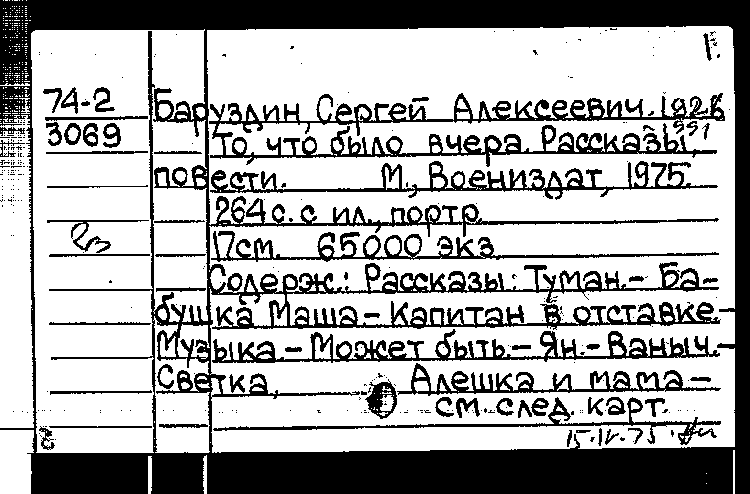 1.
74-2 Баруздин, Сергей Алексеевич. 1926
3069 То, что было вчера. Рассказы, 1991
повести. М., Воениздат, 1975.
264 с. с ил., портр.
17см. 65000 экз.
Содерж.: Рассказы: Туман.- Ба-
бушка Маша - Капитан в отставке.-
Музыка.- Может быть.- Ян.- Ваныч.-
Светка, Алешка и мама -
см. след. карт.
15.IV.75.